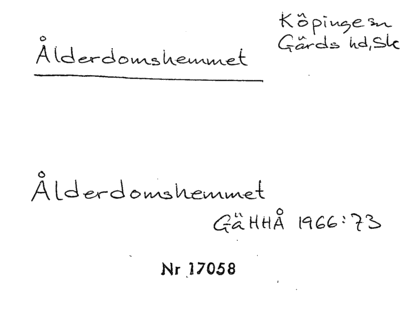 Köpinge sn
Gärds hd, Sk
Ålderdomshemmet
Ålderdomshemmet
GäHHÅ 1966:73
Nr 17058